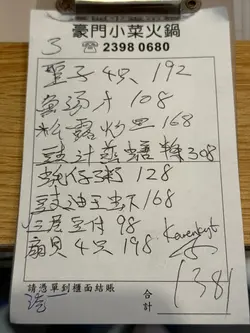 豪門小菜火鍋
☎ 2398 0680
3
聖子 4只 192
魚汤片 108
松露炒 168
豉汁蒸鱔 308
蠔仔粥 128
豉油王虾 168
豆付 98
扇貝 4只 198
請憑單到櫃面結賬
合計 1381